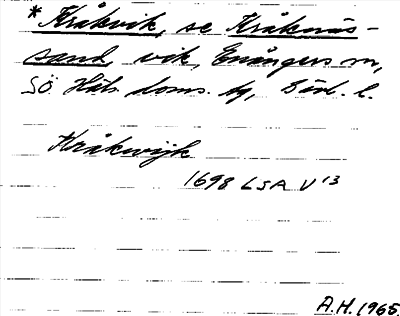 *Kråkvik, se Kråknäs-
sand, vik, Enångers sn,
Sö. Häls. doms. tg, Gävl. l.
Kråkwijk
1698 LSA V¹³
A.H. 1965.